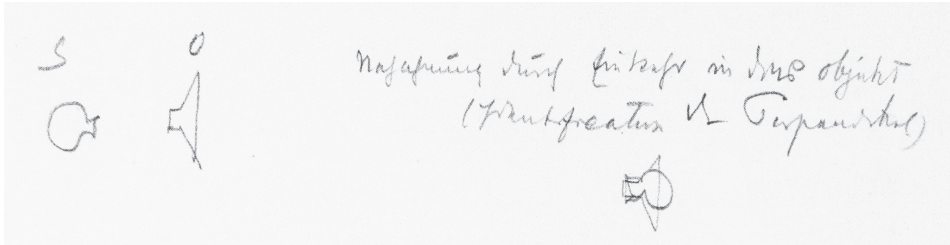 S O
Nachahmung durch Einkehr in das Objekt
(Identification der